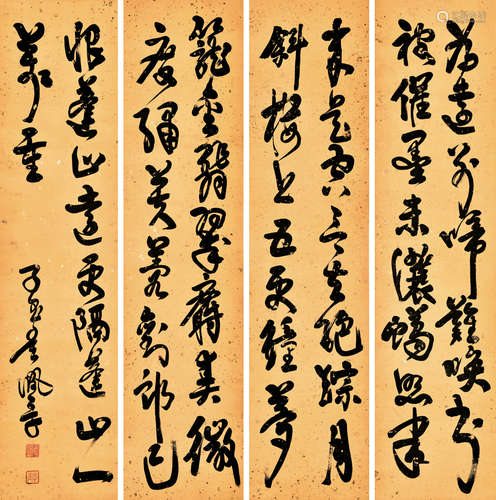 為遠別啼難喚書
被催墨未濃蠟照半
來是空言去絕踪月
斜樓上五更鐘夢
籠金翡翠麝熏微
度繡芙蓉劉郎已
恨蓬山遠更隔蓬山一
萬重
子玉吳佩孚